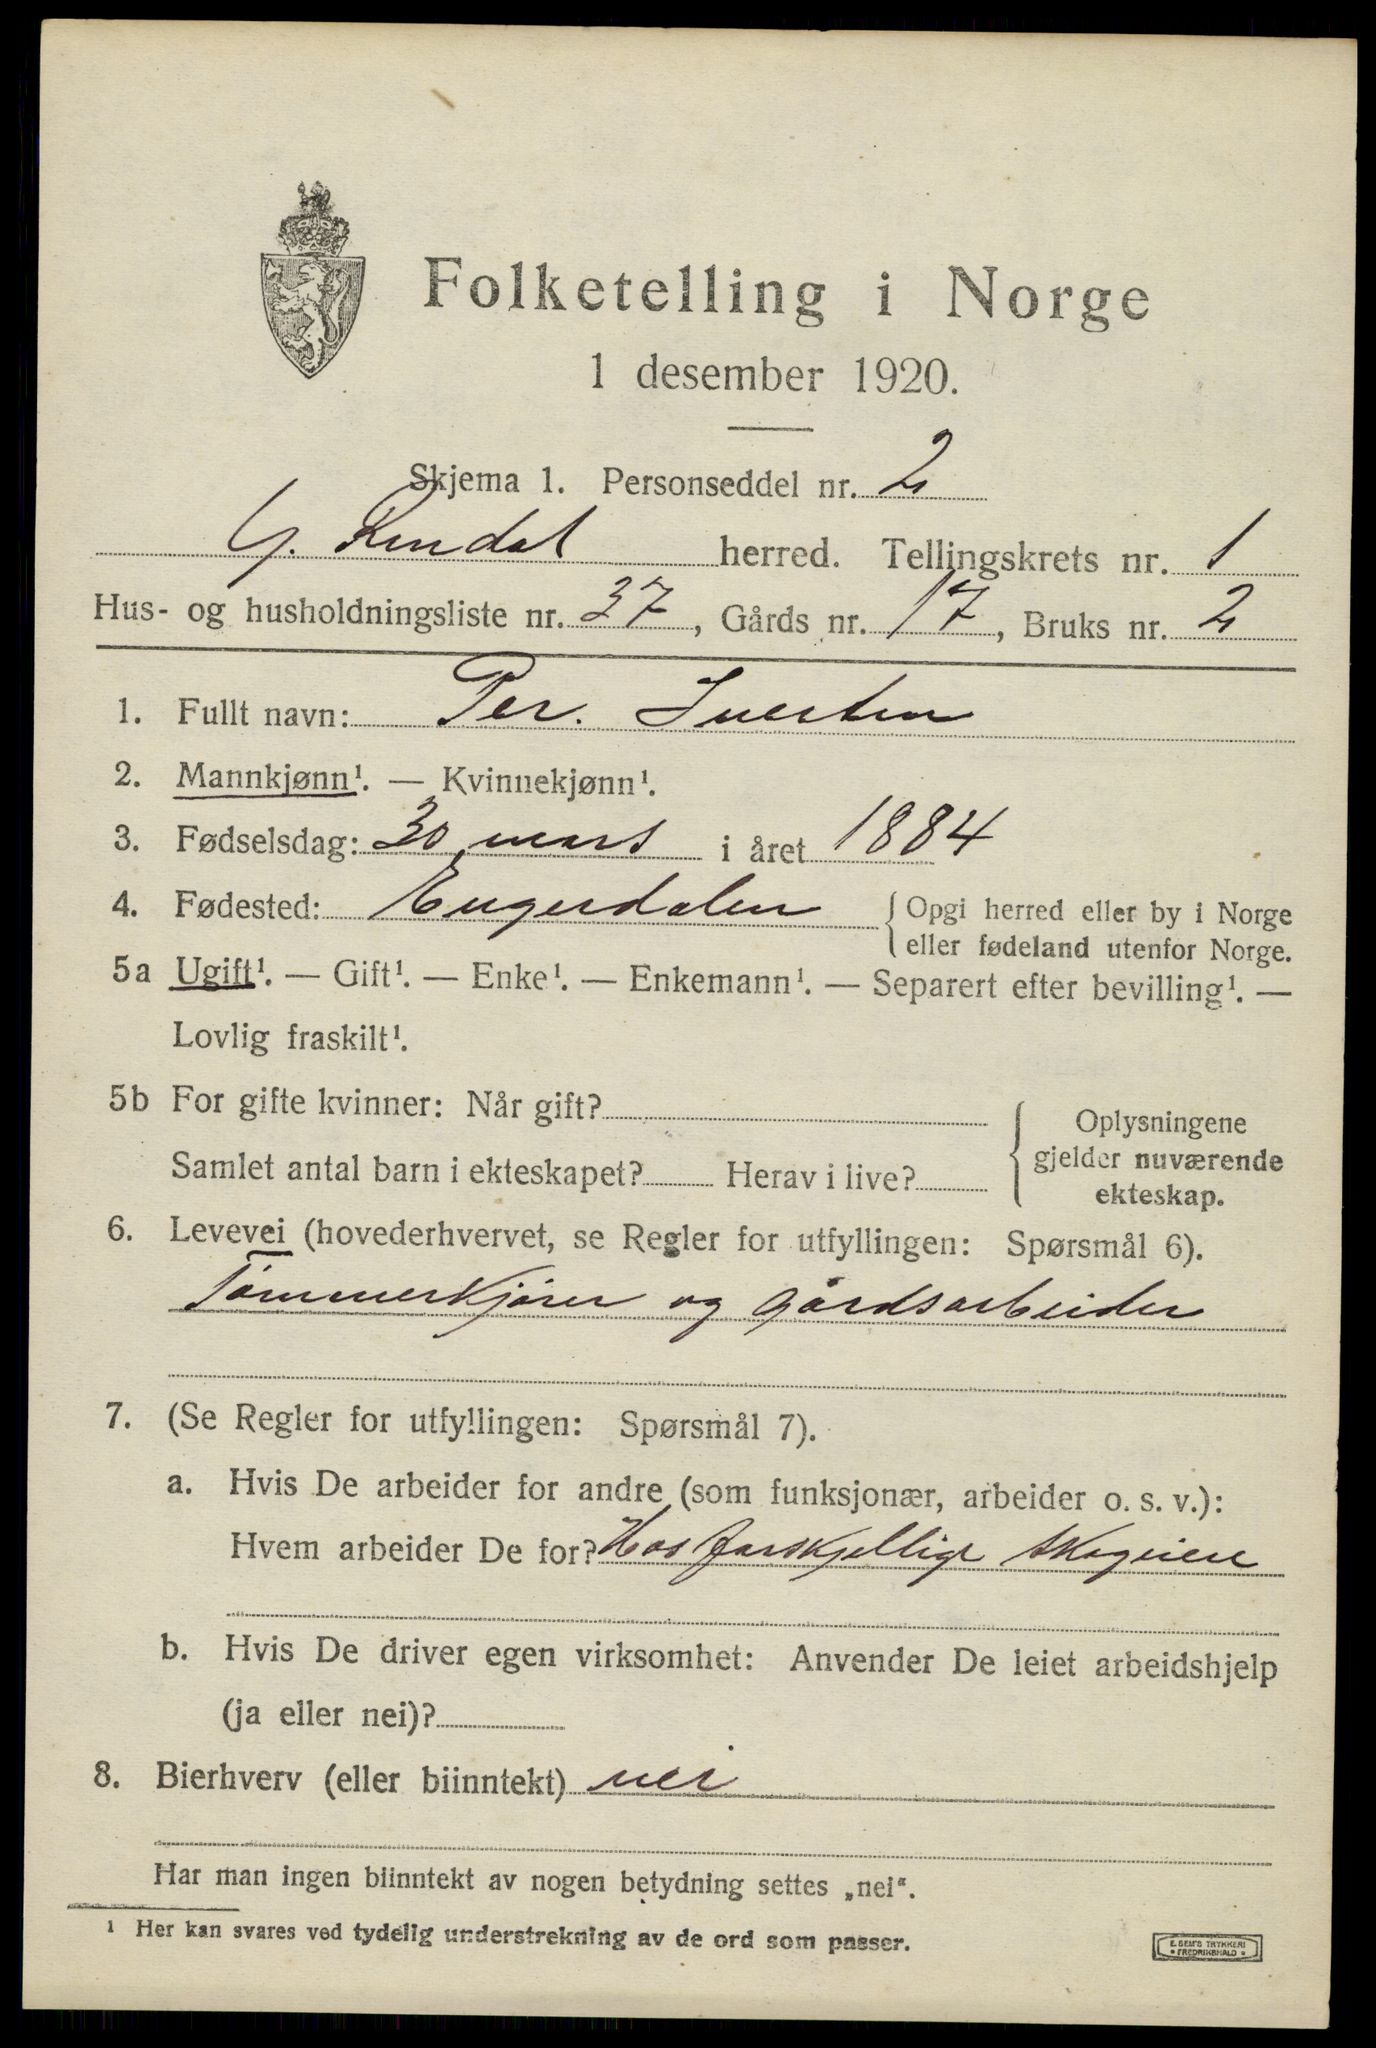 Folketelling i Norge
1 desember 1920.
Skjema 1. Personseddel nr. 2
Y. Rendal herred. Tellingskrets nr. 1
Hus- og husholdningsliste nr. 37, Gårds nr. 17, Bruks nr. 2
1. Fullt navn: Per.
2. Mannkjønn¹. — Kvinnekjønn¹.
3. Fødselsdag: 30 mars i året 1884
4. Fødested: Engerdalen { Opgi herred eller by i Norge
eller fødeland utenfor Norge.
5a Ugift¹. — Gift¹. — Enke¹. — Enkemann¹. — Separert efter bevilling¹. —
Lovlig fraskilt¹.
5b For gifte kvinner: Når gift?
Samlet antal barn i ekteskapet? Herav i live?
{ Oplysningene
gjelder nuværende
ekteskap.
6. Levevei (hovederhvervet, se Regler for utfyllingen: Spørsmål 6).
Tømmerkjører og gårdsarbeider
7. (Se Regler for utfyllingen: Spørsmål 7).
a. Hvis De arbeider for andre (som funksjonær, arbeider o. s. v.):
Hvem arbeider De for? Hos forskjellige skogeiere
b. Hvis De driver egen virksomhet: Anvender De leiet arbeidshjelp
(ja eller nei)?
8. Bierhverv (eller biinntekt) nei
Har man ingen biinntekt av nogen betydning settes „nei“.
¹ Her kan svares ved tydelig understrekning av de ord som passer.
E. SEM'S TRYKKERI
• FREDRIKSHALD •